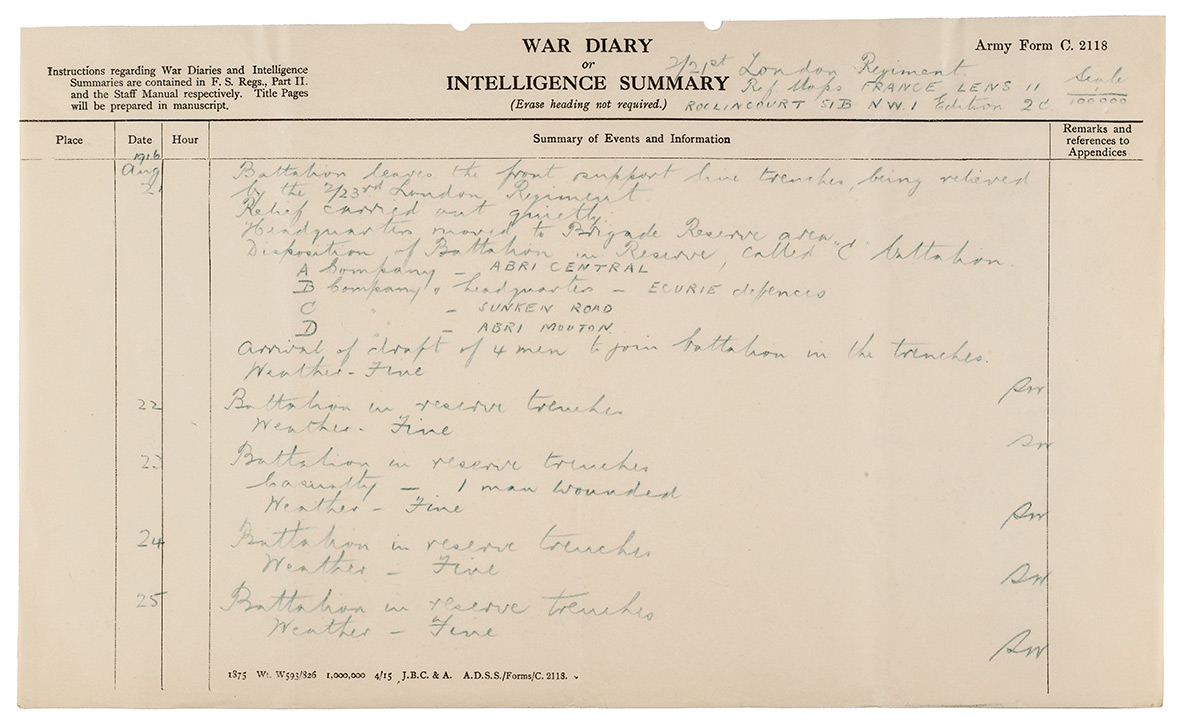 WAR DIARY
or
INTELLIGENCE SUMMARY
(Erase heading not required.)
Army Form C. 2118
Instructions regarding War Diaries and Intelligence
Summaries are contained in F. S. Regs., Part II.
and the Staff Manual respectively. Title Pages
will be prepared in manuscript.
2/21st London Regiment.
Ref Maps FRANCE LENS 11 Scale 1/100,000
ROCLINCOURT 51B NW.1 Edition 2c.
Place Date Hour Summary of Events and Information Remarks and references to Appendices
1916
Aug
21 Battalion leaves the front support line trenches, being relieved
by the 2/23rd London Regiment.
Relief carried out quietly.
Headquarters moved to Brigade Reserve area.
Disposition of Battalion in Reserve, called "C" battalion.
A Company – ABRI CENTRAL
B Company & headquarters – ECURIE defences
C " – SUNKEN ROAD
D " – ABRI MOUTON
Arrival of draft of 4 men to join battalion in the trenches.
Weather – Fine
22 Battalion in reserve trenches
Weather – Fine
23 Battalion in reserve trenches
Casualty – 1 man wounded
Weather – Fine
24 Battalion in reserve trenches
Weather – Fine
25 Battalion in reserve trenches
Weather – Fine
1875 Wt. W593/826 1,000,000 4/15 J.B.C. & A. A.D.S.S./Forms/C. 2118.